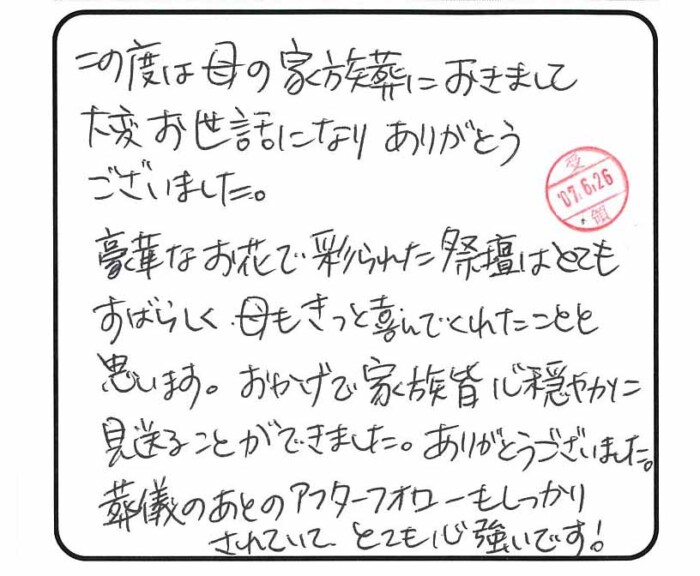 この度は母の家族葬におきまして
大変お世話になり ありがとう
ございました。
受
'07.6.26
領
豪華なお花で彩られた祭壇はとても
すばらしく 母もきっと喜んでくれたことと
思います。おかげで家族皆心穏やかに
見送ることができました。ありがとうございました。
葬儀のあとのアフターフォローもしっかり
されていて とても心強いです!